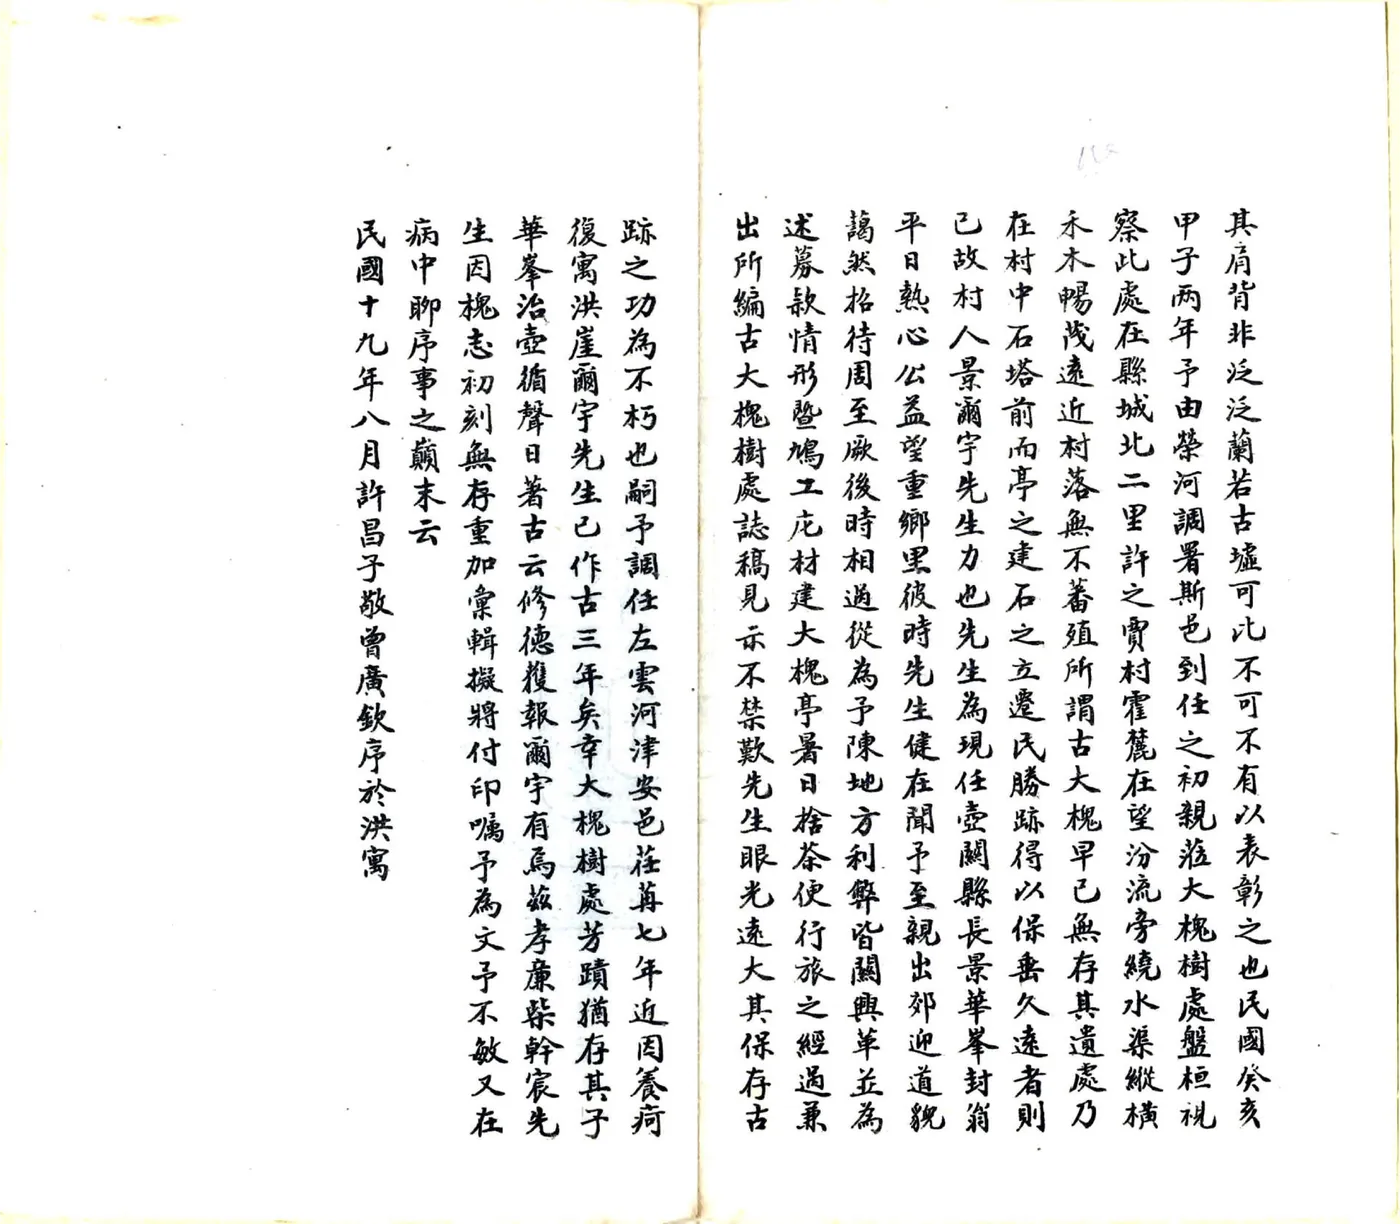 其肩背非泛泛蘭若古墟可比不可不有以表彰之也民國癸亥
甲子兩年予由榮河調署斯邑到任之初親蒞大槐樹處盤桓視
察此處在縣城北二里許之賈村霍麓在望汾流旁繞水渠縱橫
禾木暢茂遠近村落無不蕃殖所謂古大槐早已無存其遺處乃
在村中石塔前而亭之建石之立遷民勝跡得以保垂久遠者則
已故村人景爾宇先生力也先生為現任壺關縣長景華峯封翁
平日熱心公益望重鄉里彼時先生健在聞予至親出郊迎道貌
藹然招待周至厥後時相過從為予陳地方利弊皆關興革並為
述募款情形暨鳩工庀材建大槐亭暑日捨茶便行旅之經過兼
出所編古大槐樹處誌稿見示不禁歎先生眼光遠大其保存古
跡之功為不朽也嗣予調任左雲河津安邑荏苒七年近因養疴
復寓洪崖爾宇先生已作古三年矣幸大槐樹處芳蹟猶存其子
華峯治壺循聲日著古云修德獲報爾宇有焉茲孝廉柴幹宸先
生因槐志初刻無存重加彙輯擬將付印囑予為文予不敏又在
病中聊序事之巔末云
民國十九年八月許昌子敬曾廣欽序於洪寓